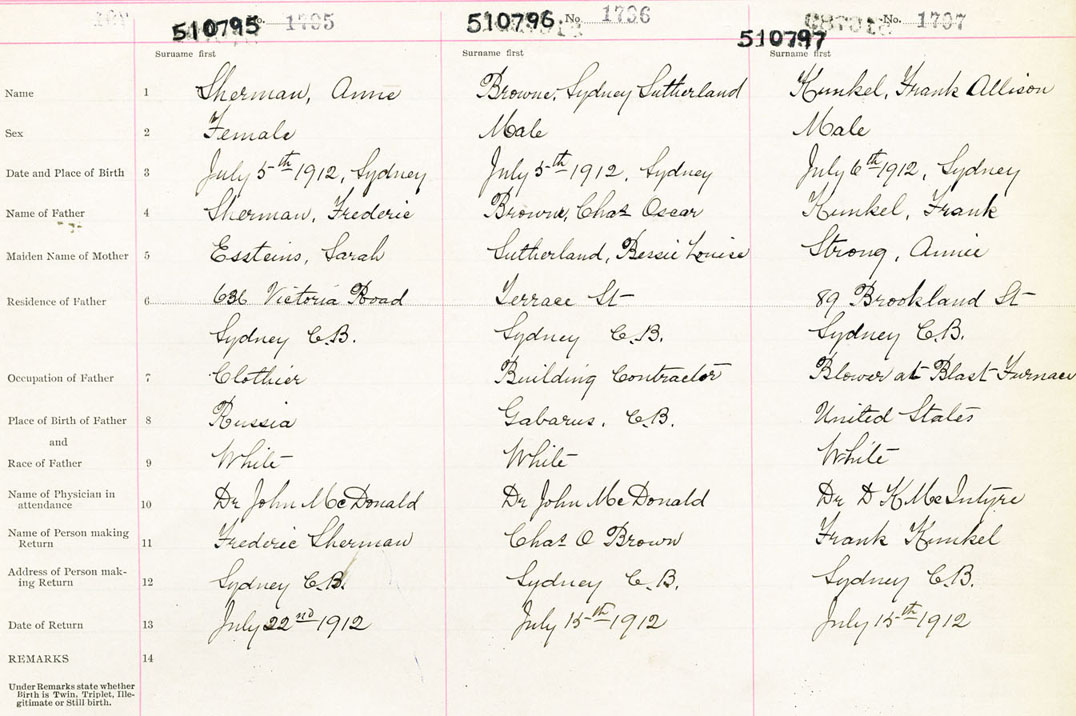 510795 No. 1795 510796 No. 1796 510797 No. 1797
Surname first Surname first Surname first
Name 1 Sherman, Annie Browne, Sydney Sutherland Kunkel, Frank Allison
Sex 2 Female Male Male
Date and Place of Birth 3 July 5th 1912, Sydney July 5th 1912, Sydney July 6th 1912, Sydney
Name of Father 4 Sherman, Frederic Browne, Chas Oscar Kunkel, Frank
Maiden Name of Mother 5 Essteins, Sarah Sutherland, Bessie Louise Strong, Annie
Residence of Father 6 636 Victoria Road Terrace St 89 Brookland St
Sydney C.B. Sydney C.B. Sydney C.B.
Occupation of Father 7 Clothier Building Contractor Blower at Blast Furnace
Place of Birth of Father 8 Russia Gabarus, C.B. United States
and
Race of Father 9 White White White
Name of Physician in
attendance 10 Dr John McDonald Dr John McDonald Dr D K McIntyre
Name of Person making
Return 11 Frederic Sherman Chas O Brown Frank Kunkel
Address of Person mak-
ing Return 12 Sydney C.B. Sydney C.B. Sydney C.B.
Date of Return 13 July 22nd 1912 July 15th 1912 July 15th 1912
REMARKS 14
Under Remarks state whether
Birth is Twin, Triplet, Ille-
gitimate or Still birth.